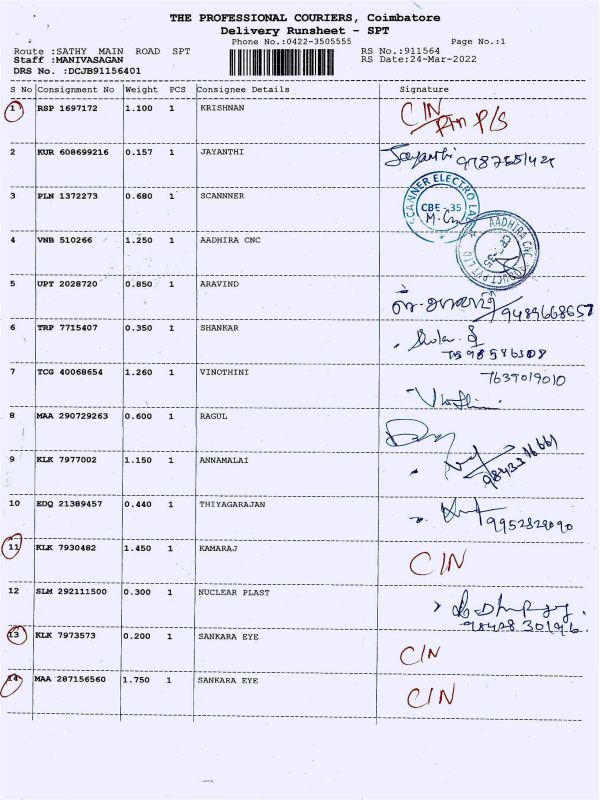 THE PROFESSIONAL COURIERS, Coimbatore
Delivery Runsheet - SPT
Phone No.:0422-3505555 Page No.:1
Route :SATHY MAIN ROAD SPT RS No.:911564
Staff :MANIVASAGAN RS Date:24-Mar-2022
DRS No. :DCJB91156401
S No Consignment No Weight PCS Consignee Details Signature
1 RSP 1697172 1.100 1 KRISHNAN C/N
P/S
2 KUR 608699216 0.157 1 JAYANTHI Jayanthi
3 PLN 1372273 0.680 1 SCANNNER
SCANNER ELECTRO
CBE - 35
4 VNB 510266 1.250 1 AADHIRA CNC
AADHIRA CNC
5 UPT 2028720 0.850 1 ARAVIND 9489668657
6 TRP 7715407 0.350 1 SHANKAR
7 TCG 40068654 1.260 1 VINOTHINI 7639019010
8 MAA 290729263 0.600 1 RAGUL
9 KLK 7977002 1.150 1 ANNAMALAI
10 EDQ 21389457 0.440 1 THIYAGARAJAN 9952829090
11 KLK 7930482 1.450 1 KAMARAJ C/N
12 SLM 292111500 0.300 1 NUCLEAR PLAST
9842830196
13 KLK 7973573 0.200 1 SANKARA EYE C/N
14 MAA 287156560 1.750 1 SANKARA EYE C/N